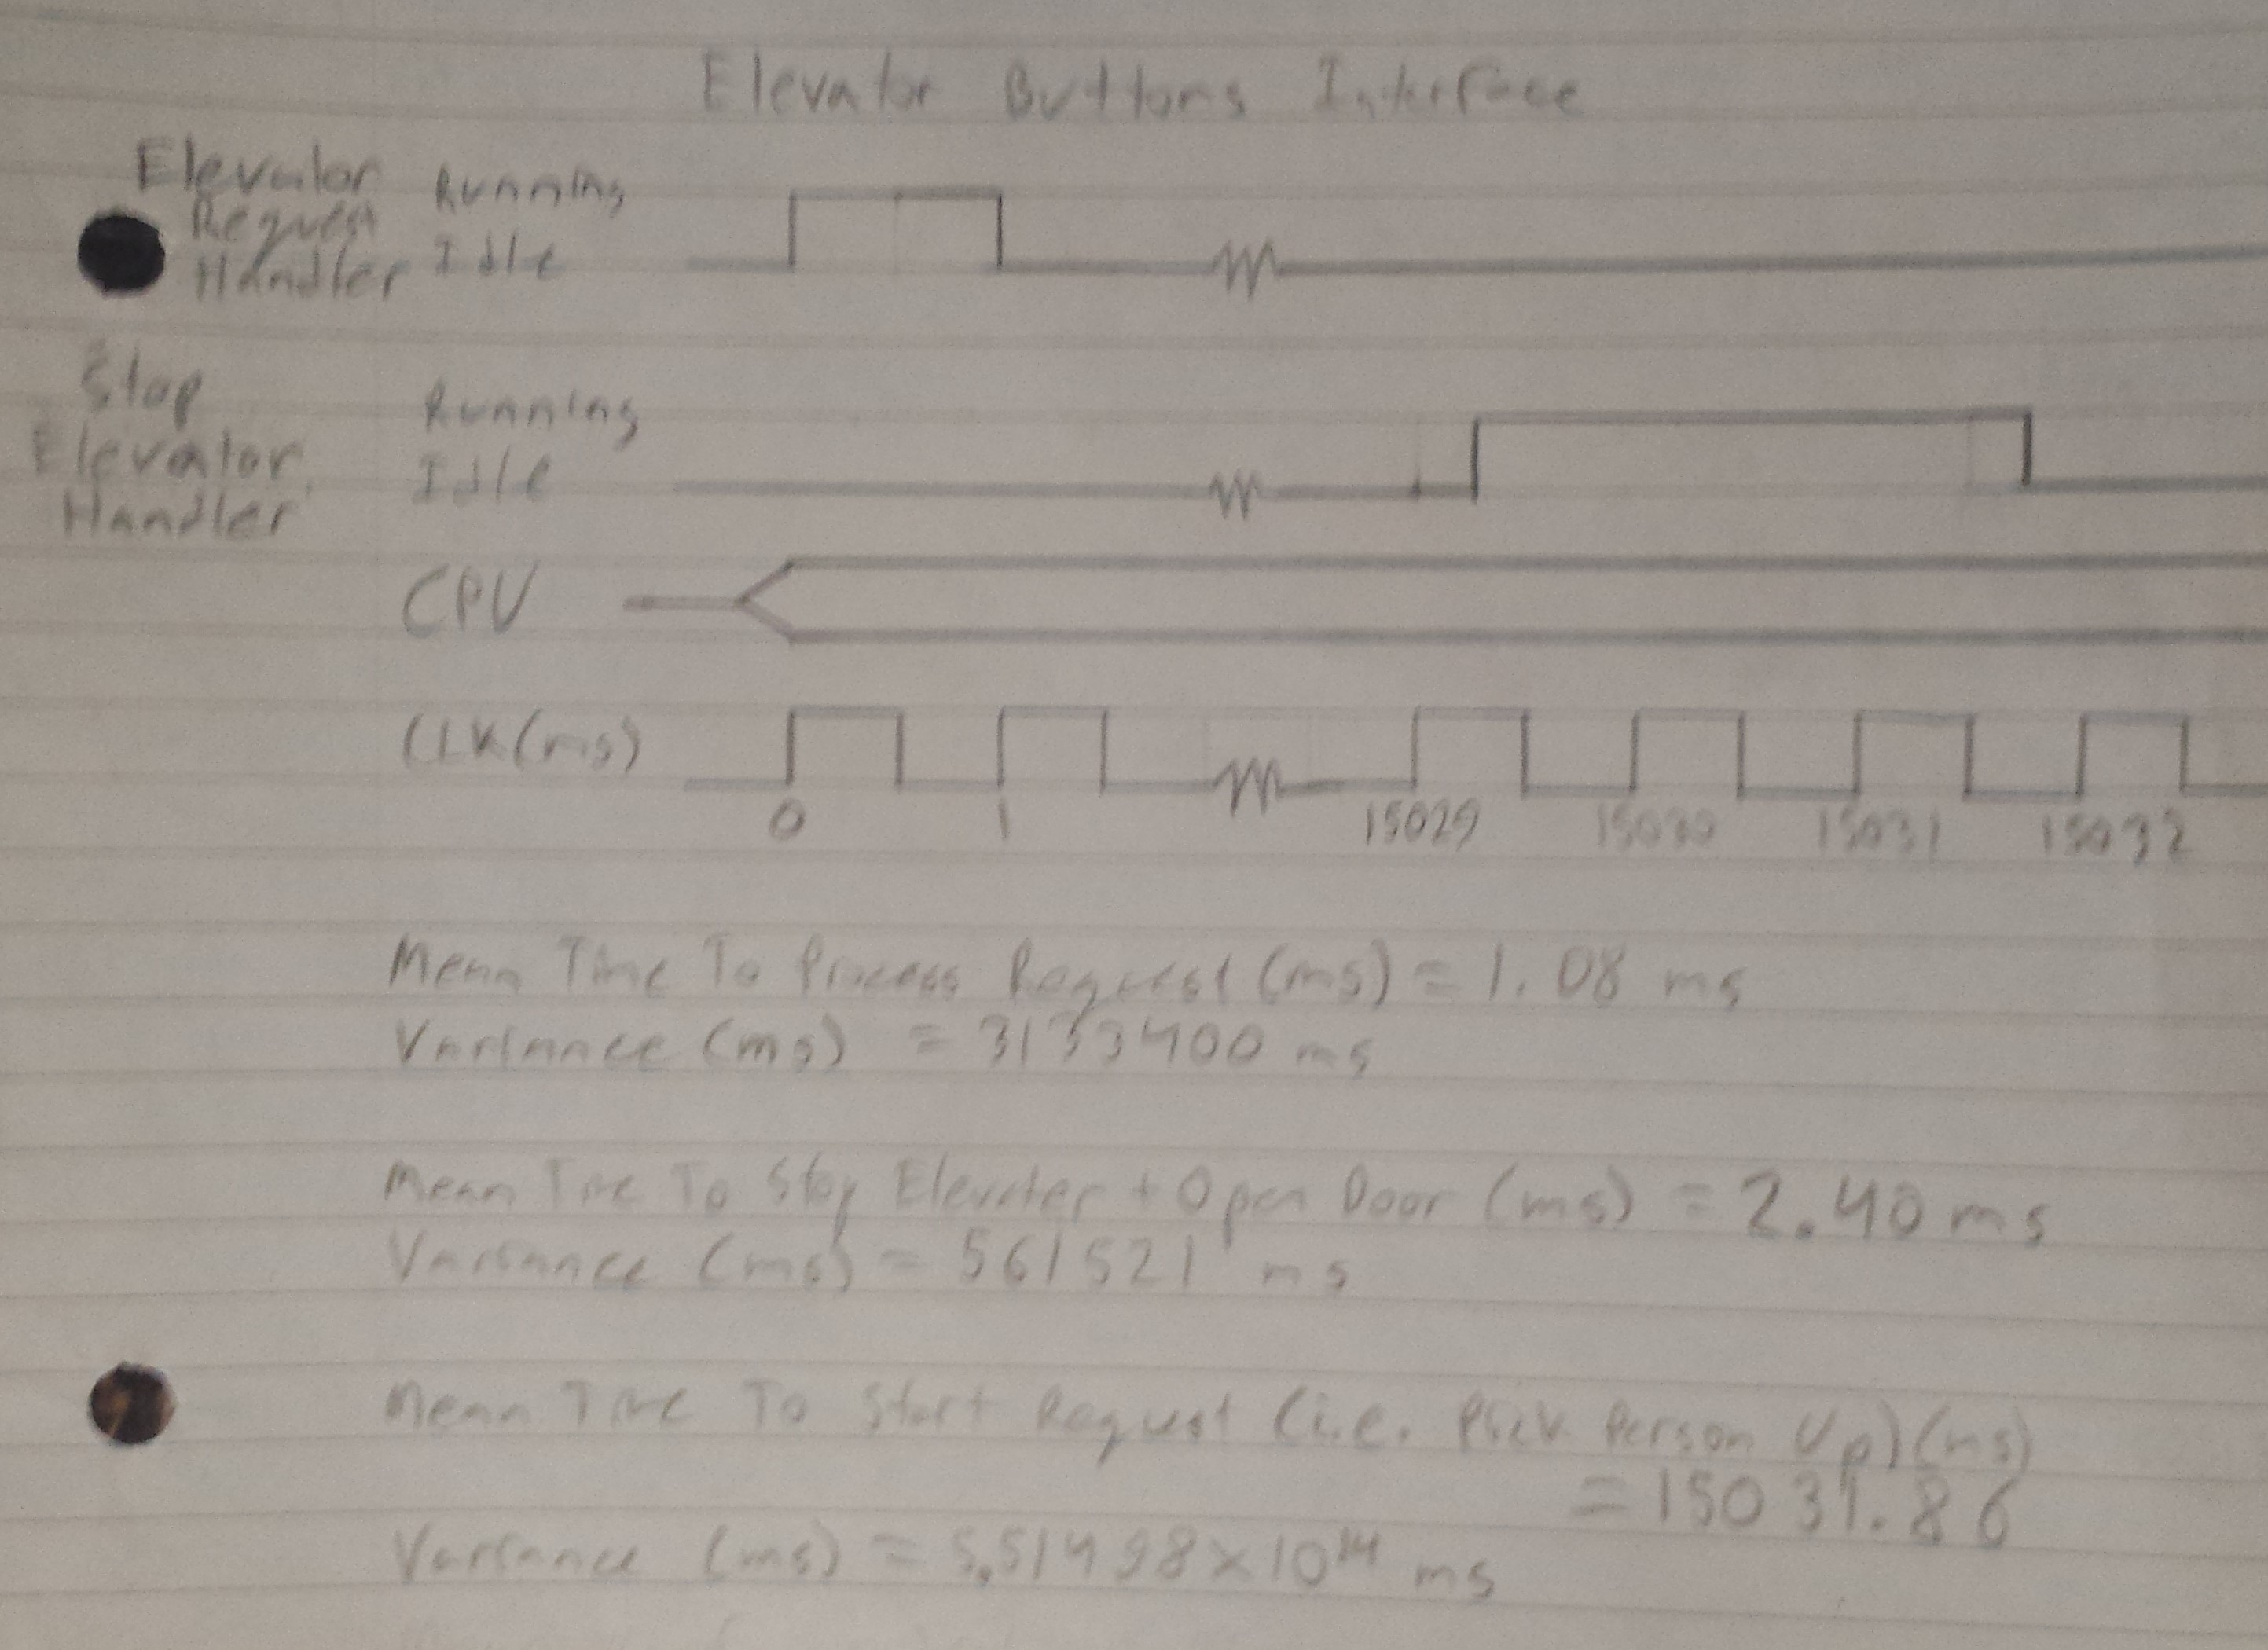 Elevator Buttons Interface
Elevator
Request
Handler
Running
Idle
Stop
Elevator
Handler
Running
Idle
CPU
CLK(ms)
0 1 15029 15030 15031 15032
Mean Time To Process Request (ms) = 1.08 ms
Variance (ms) = 3133400 ms
Mean Time To Stop Elevator + Open Door (ms) = 2.40 ms
Variance (ms) = 561521 ms
Mean Time To Start Request (i.e. Pick Person Up) (ms)
= 15031.86
Variance (ms) = 5.51498x10¹⁴ ms